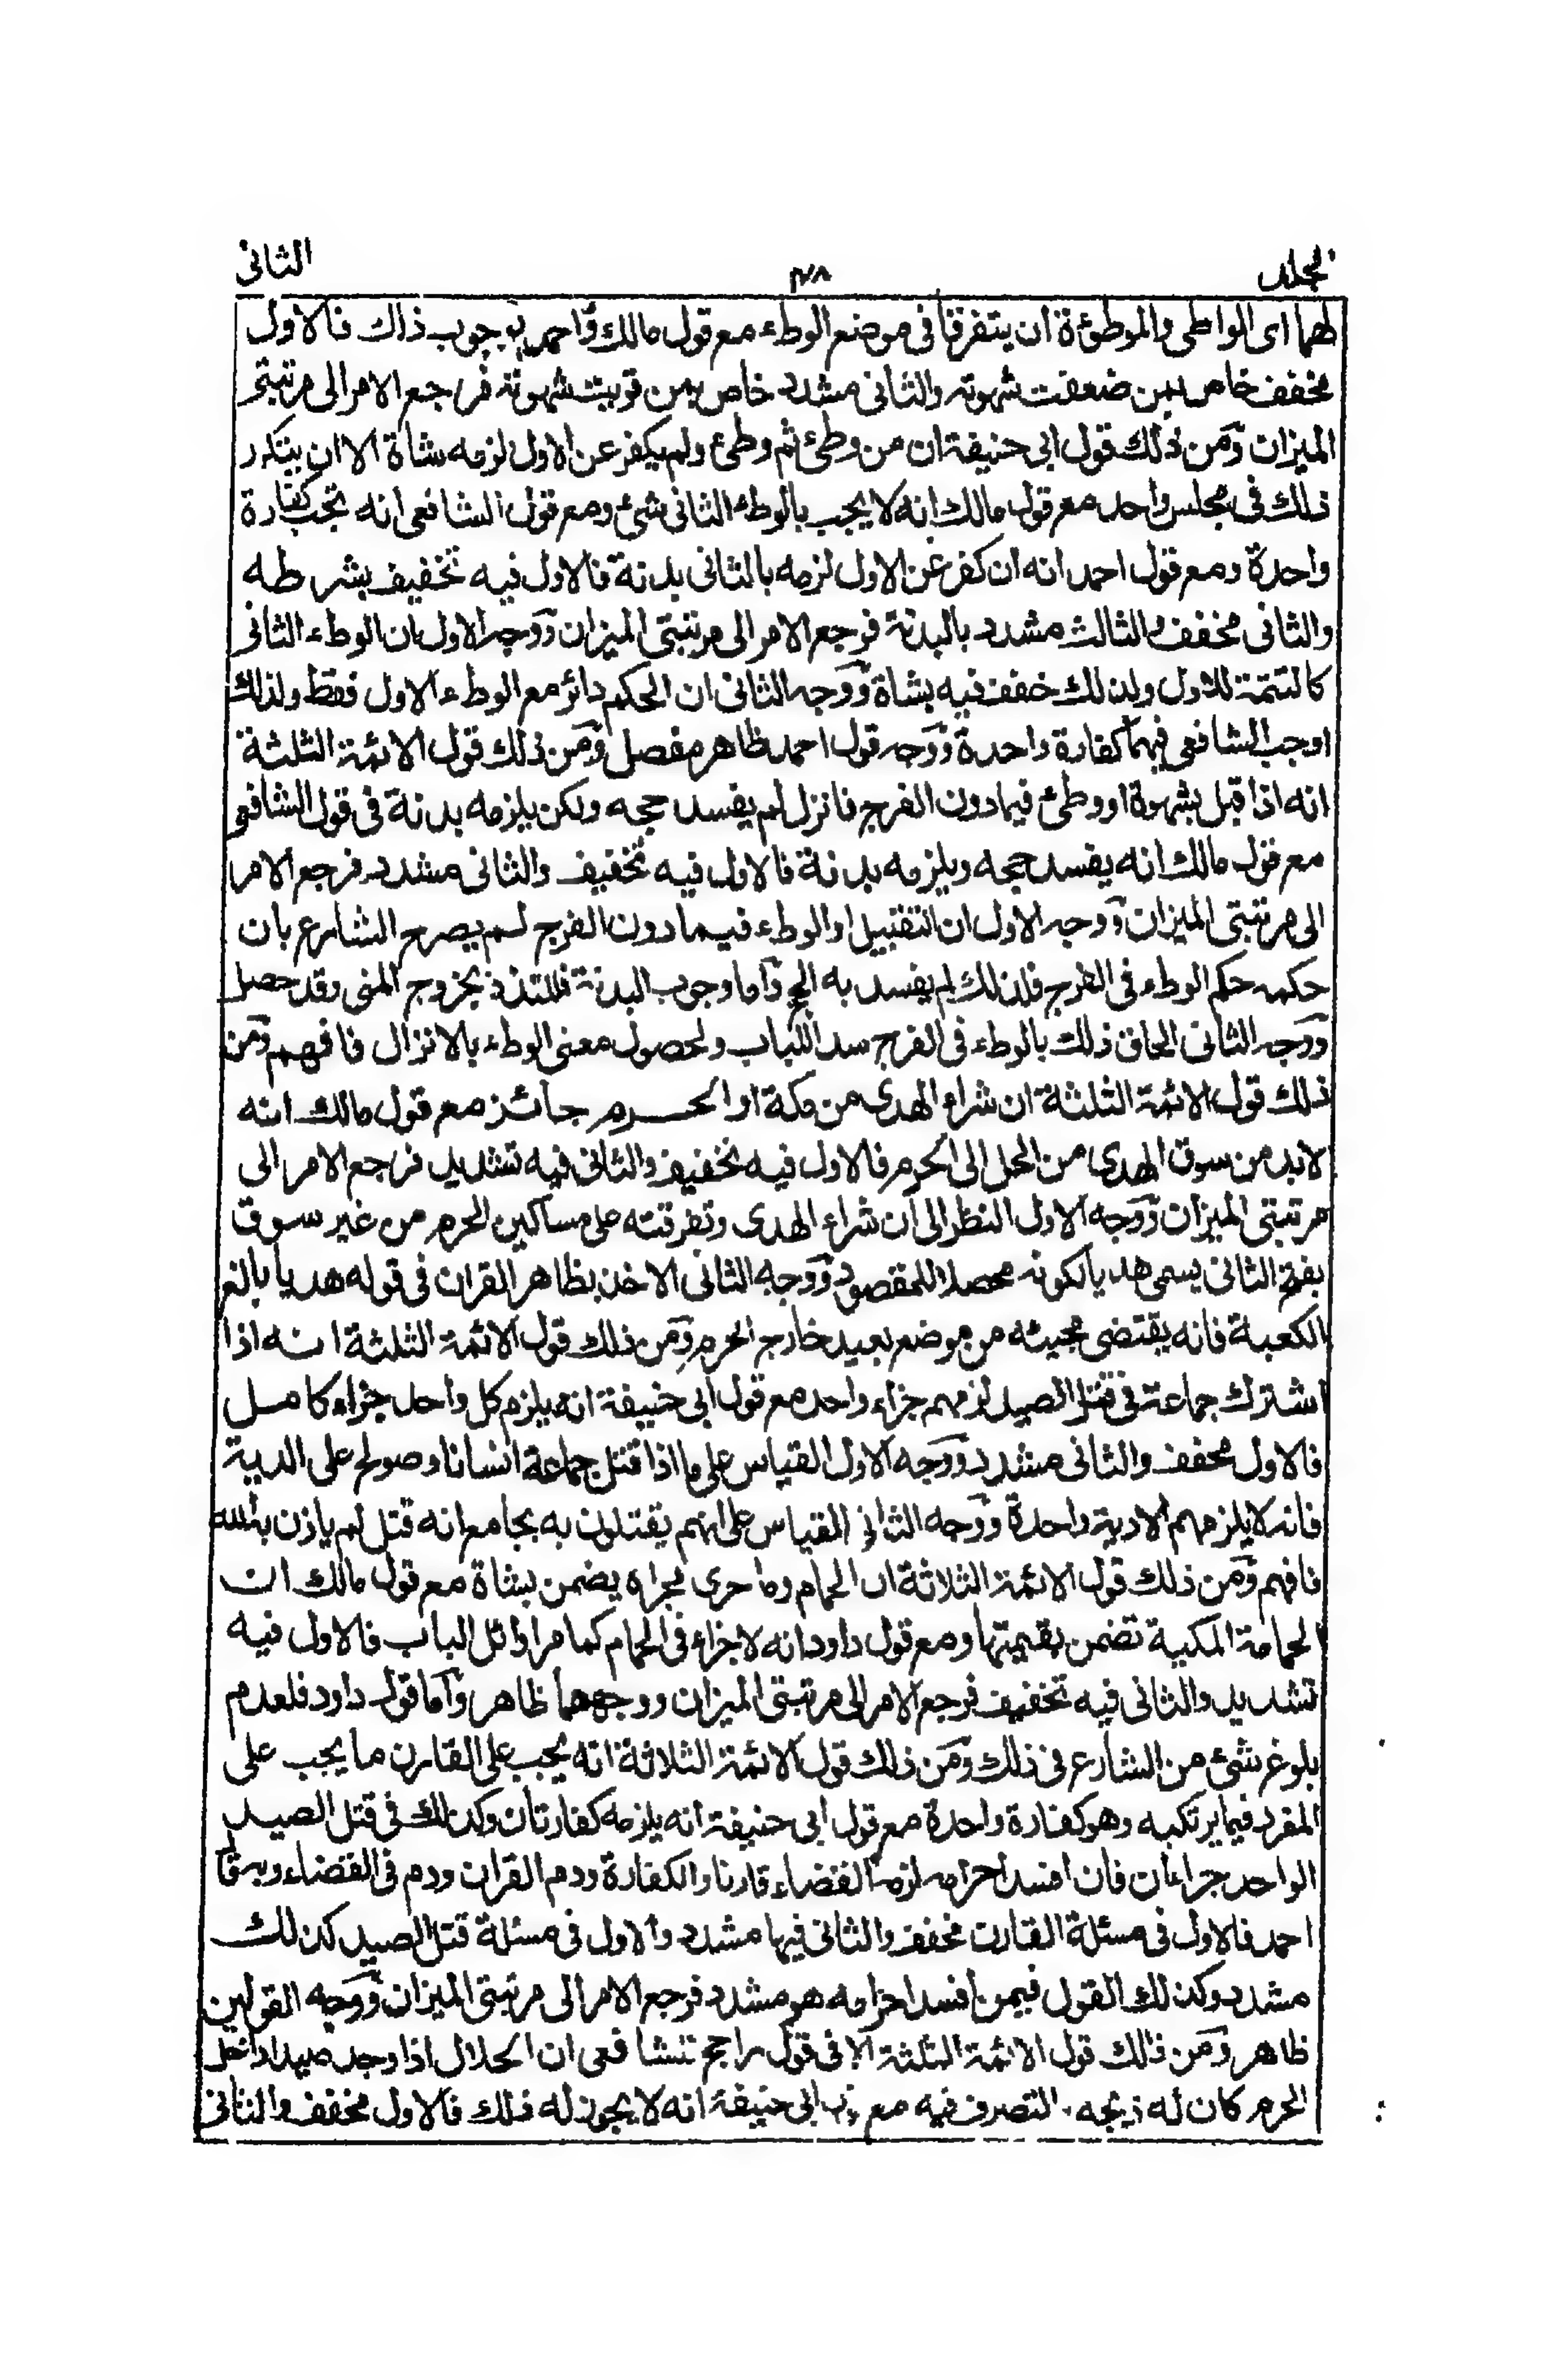 المجلد ٢٨ الثانى
لهما اى الواطى والموطؤة ان يتفرقا فى موضع الوطء مع قول مالك واحمد بوجوب ذلك فالاول
مخفف خاص بمن ضعفت شهوته والثانى مشدد خاص بمن قويت شهوته فرجع الامر الى مرتبتى
الميزان ومن ذلك قول ابى حنيفة ان من وطئ ثم وطئ ولم يكفر عن الاول لزمه شاة الا ان يتكرر
ذلك فى مجلس واحد مع قول مالك انه لا يجب بالوطء الثانى شئ ومع قول الشافعى انه تجب كفارة
واحدة ومع قول احمد انه ان كفر عن الاول لزمه بالثانى بدنة فالاول فيه تخفيف بشرطه
والثانى مخفف والثالث مشدد بالبدنة فرجع الامر الى مرتبتى الميزان ووجه الاول ان الوطء الثانى
كالتتمة للاول ولذلك خفف فيه بشاة ووجه الثانى ان الحكم دائر مع الوطء الاول فقط ولذلك
اوجب الشافعى فيهما كفارة واحدة ووجه قول احمد ظاهر مفصل ومن ذلك قول الائمة الثلثة
انه اذا قبل بشهوة او وطئ فيما دون الفرج فانزل لم يفسد حجه ولكن يلزمه بدنة فى قول الشافعى
مع قول مالك انه يفسد حجه ويلزمه بدنة فالاول فيه تخفيف والثانى مشدد فرجع الامر
الى مرتبتى الميزان ووجه الاول ان التقبيل او الوطء فيما دون الفرج لم يصرح الشارع بان
حكمه حكم الوطء فى الفرج فلذلك لم يفسد به الحج واما وجوب البدنة فللتلذذ بخروج المنى وقد حصل
ووجه الثانى الحاق ذلك بالوطء فى الفرج سدا للباب ولحصول معنى الوطء بالانزال فافهم ومن
ذلك قول الائمة الثلثة ان شراء الهدى من مكة او الحرم جائز مع قول مالك انه
لابد من سوق الهدى من الحل الى الحرم فالاول فيه تخفيف والثانى فيه تشديد فرجع الامر الى
مرتبتى الميزان ووجه الاول النظر الى ان شراء الهدى وتفرقته على مساكين الحرم من غير سوق
الثانى يسمى هديا لكونه محصلا للمقصود ووجه الثانى الاخذ بظاهر القران فى قوله هديا بالغ
الكعبة فانه يقتضى مجيئه من موضع بعيد خارج الحرم ومن ذلك قول الائمة الثلثة انه اذا
اشترك جماعة فى قتل الصيد لزمهم جزاء واحد مع قول ابى حنيفة انه يلزم كل واحد جزاء كامل
فالاول مخفف والثانى مشدد ووجه الاول القياس على ما اذا قتل جماعة انسانا وصولح على الدية
فانه لا يلزمهم الا دية واحدة ووجه الثانى القياس على انهم يقتلون به بجامع انه قتل لم ياذن به الله
فافهم ومن ذلك قول الائمة الثلاثة ان الحمام وما جرى مجراه يضمن بشاة مع قول مالك ان
الحمامة المكية تضمن بقيمتها ومع قول داود انه لا جزاء فى الحمام كما مر اوائل الباب فالاول فيه
تشديد والثانى فيه تخفيف فرجع الامر الى مرتبتى الميزان ووجههما ظاهر واما قول داود فلعدم
بلوغ شئ من الشارع فى ذلك ومن ذلك قول الائمة الثلاثة انه يجب على القارن ما يجب على
المفرد فيما يرتكبه وهو كفارة واحدة مع قول ابى حنيفة انه يلزمه كفارتان وكذلك فى قتل الصيد
الواحد جزاءان فان افسد احرامه لزمه القضاء قارنا والكفارة ودم القران ودم فى القضاء وبه قال
احمد فالاول فى مسئلة القارن مخفف والثانى فيها مشدد والاول فى مسئلة قتل الصيد كذلك
مشدد وكذلك القول فيمن افسد احرامه هو مشدد فرجع الامر الى مرتبتى الميزان ووجه القولين
ظاهر ومن ذلك قول الائمة الثلثة الا فى قول راجح للشافعى ان الحلال اذا وجد صيدا داخل
الحرم كان له ذبحه التصرف فيه مع ابى حنيفة انه لا يجوز له ذلك فالاول مخفف والثانى